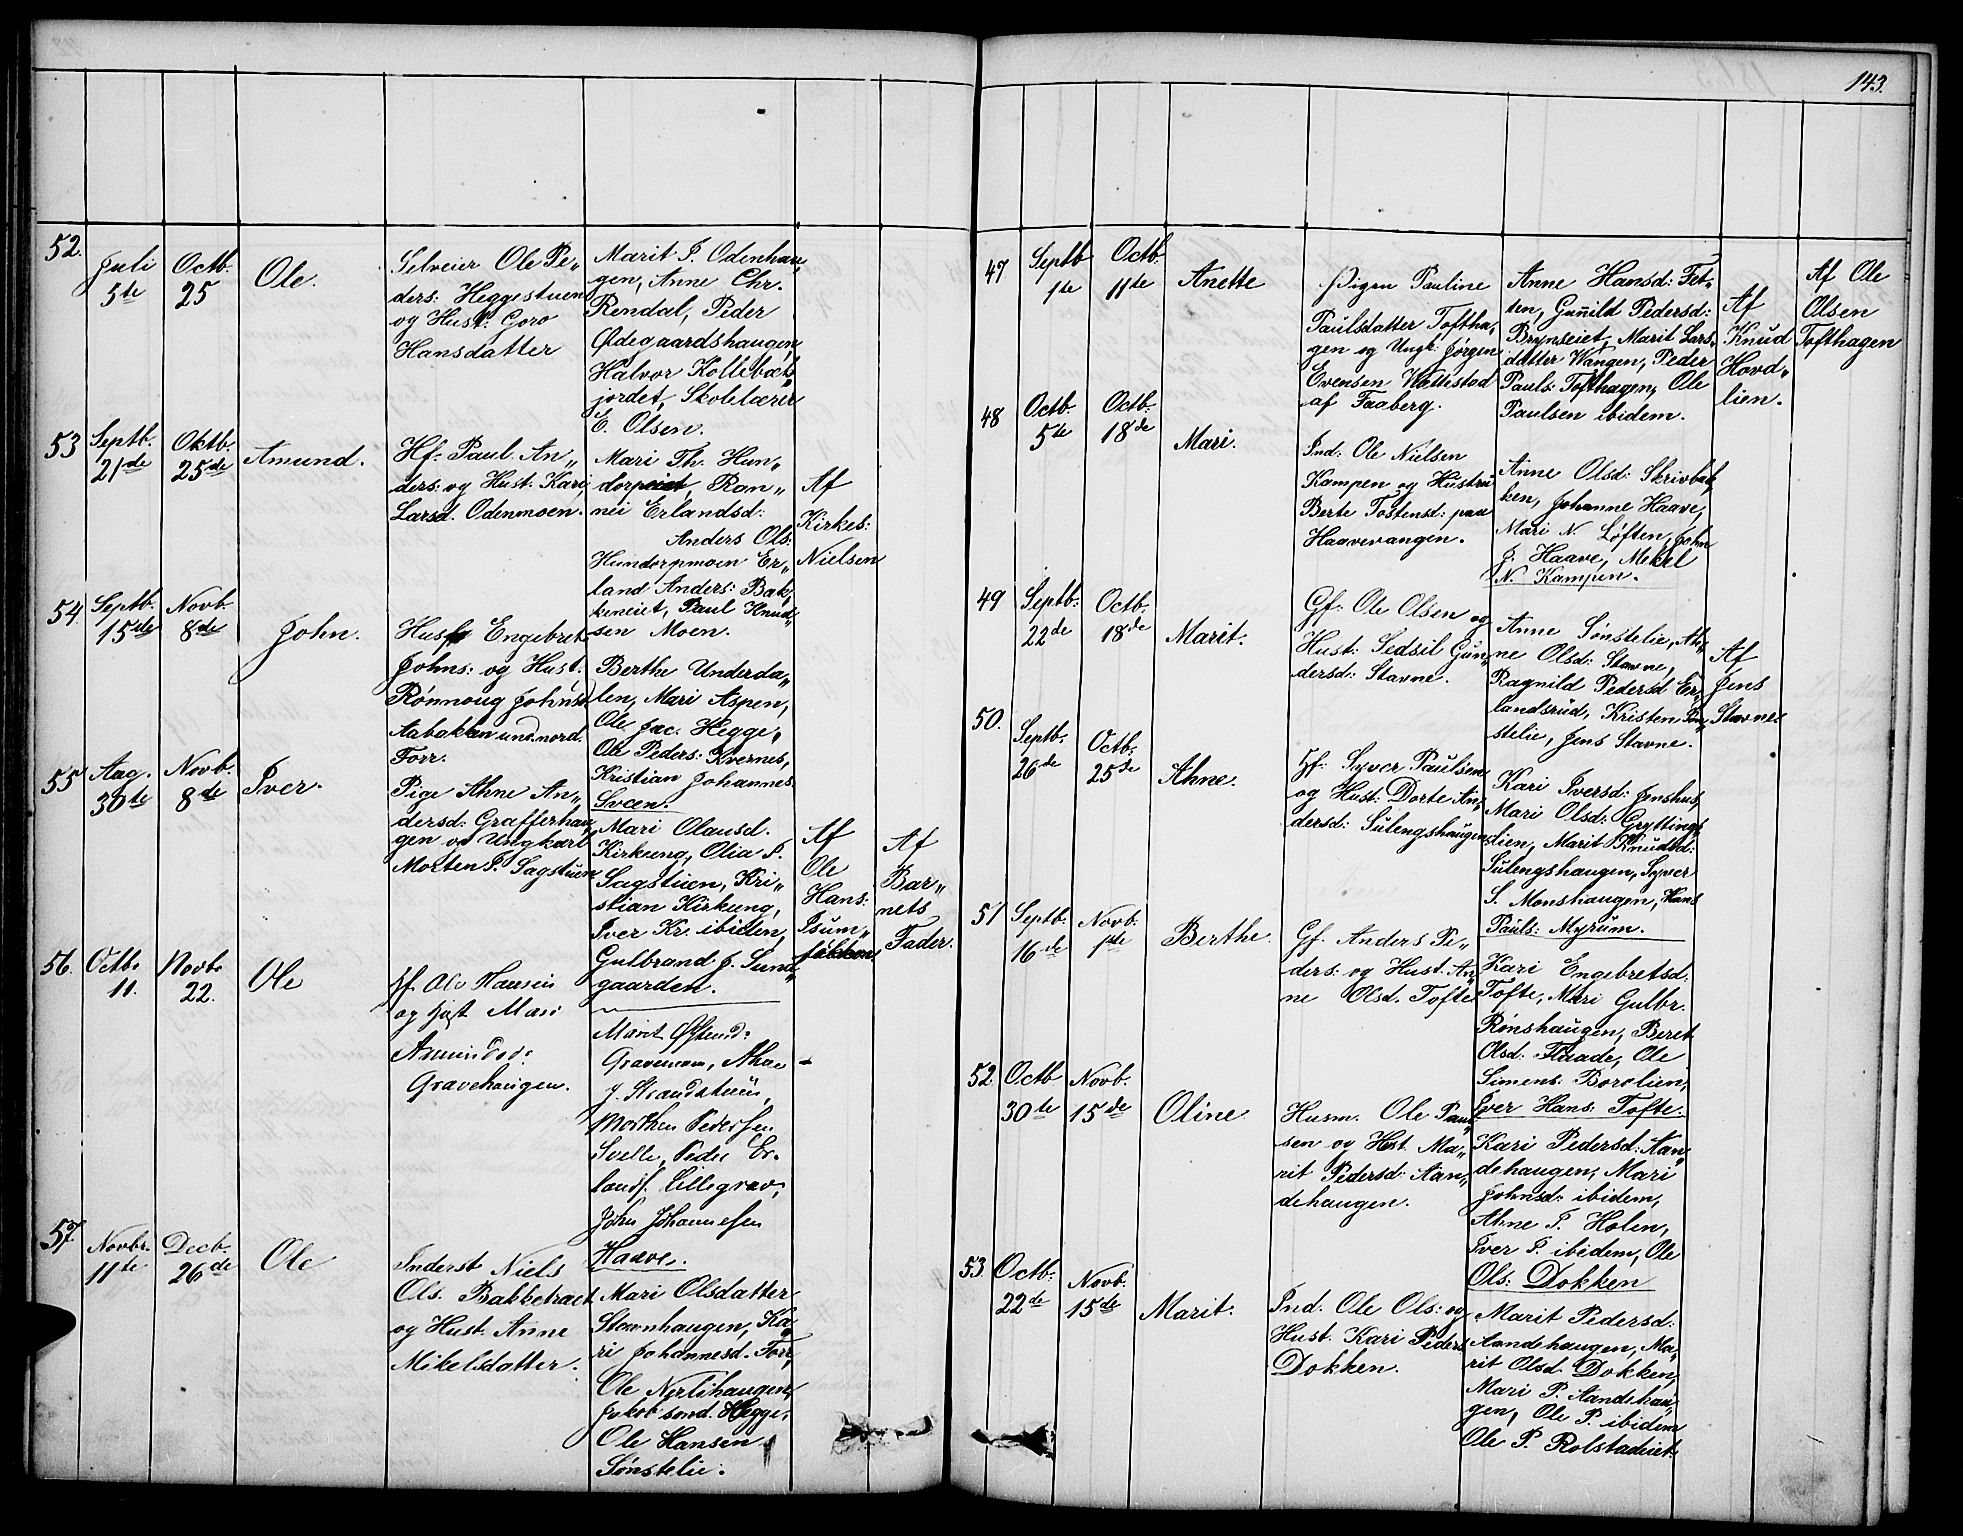 143.
52.
Juli
5te
Octb.
25
Ole.
Selveier Ole Pe„
ders: Heggestuen
og Hust: Goro
Hansdatter
Marit P. Odenhau„
gen, Anne Chr.
Rendal, Peder
Ødegaardshaugen,
Halvor Kollebæk„
jordet, Skolelærer
E. Olsen.
53
Septb.
21de
Oktb.
25de
Amund.
Hf: Paul An„
ders: og Hust: Kari
Larsd. Odenmoen.
Mari Th. Hun„
dorpeiet, Ran„
nei Erlandsd:
Anders Ols:
Hundorpmoen Er„
land Anders: Bak„
keneiet, Paul Knud„
sen Moen.
Af
Kirkes:
Nielsen
54
Septb.
15de
Novb.
8de
John.
Husf Engebret
Johns: og Hust.
Rönnoug Johnsd
Aabakken und. nord.
Forr.
Berthe Underda„
len, Mari Aspen,
Ole Jac. Hegge„
Ole Peders: Kvernes,
Kristian Johannes
Sveen.
55
Aug.
30te
Novb.
8de
Iver.
Pige Ahne An„
dersd: Grafferhau„
gen og Ungkarl
Morten P. Sagstuen
Mari Olausd.
Kirkeung, Olia P.
Sagstuen, Kri„
stian Kirkeung,
Iver Kr. ibiden,
Gulbrand J. Sund„
gaarden.
Af
Ole
Hans:
Isum„
løkken
Af
Bar„
nets
Fader.
56.
Octb.
11.
Novb.
22.
Ole
Hf. Ole Hansen
og Hust Mari
Amundsd:
Gravehaugen.
Marit Østend:
Gravemoen, Ahne
J. Strandstuen,
Morthen Pedersen
Svelle, Peder Er„
lands. Lillegrav,
John Johannesen
Haave.
57.
Novbr.
11te
Decb.
26de
Ole
Inderst Niels
Ols. Bakketræet
og Hust. Anne
Mikelsdatter.
Mari Olsdatter
Stavnhaugen, Ka„
ri Johannesd. Forr,
Ole Nerlihaugen,
Jakob send. Hegge,
Ole Hansen
Sønstelie.
47
Septb
1te
Octb.
11te
Anette
Pigen Pauline
Paulsdatter Toftha„
gen og Ungk: Jørgen
Evensen Wættestad
af Faaberg.
Anne Hansd: Fet„
ten, Guñild Pedersd:
Brynseiet, Marit Lars„
datter Wangen, Peder
Pauls: Tofthagen, Ole
Paulsen ibidem.
Af
Knud
Hovd„
lien.
Af Ole
Olsen
Tofthagen
48
Octb.
5te
Octb.
18de
Mari.
Ind: Ole Nielsen
Kampen og Hustru
Berte Tostensd: paa
Haavevangen.
Anne Olsd: Skrivbak„
ken, Johanne Haave,
Mari N. Løften, John
J. Haave, Mekel
N. Kampen.
49
Septb:
22de
Octb:
18de
Marit.
Gf: Ole Olsen og
Hust: Sedsil Gun„
dersd: Stavne.
Anne Sønstelie, Ah„
ne Olsd: Stavne,
Ragnild Pedersd Er„
landsrud, Kristen Søn„
stelie, Jens Stavne.
Af
Jens
Stavne
50.
Septb.
26de
Octb:
25de
Ahne.
Hf: Syver Paulsen
og Hust: Dorte An„
dersd: Sulengshaugen
Kari Iversd: Jenshus,
Mari Olsd: Gryttings„
lien, Marit Knudsd:
Sulengshaugen, Syver
S. Monshaugen, Hans
Pauls: Myrum.
51
Septb:
16de
Novb.
1te
Berthe.
Gf. Anders Pe„
ders: og Hust. An„
ne Olsd. Tofte
Kari Engebretsd:
Tofte, Mari Gulbr.
Rönshaugen, Beret
Olsd. Flaade, Ole
Simens: Borolien,
Iver Hans: Tofte.
52
Octb
30te
Novb.
15de
Oline
Husm. Ole Paul„
sen og Hust. Ma„
rit Pedersd: Aan„
dehaugen.
Kari Pedersd: Aan„
dehaugen, Mari
Johnsd: ibidem,
Ahne P. Holen,
Iver P. ibidem, Ole
Ols: Dokken
53.
Octb:
22de
Novb:
15de
Marit.
Ind: Ole Ols: og
Hust. Kari Peders
Dokken.
Marit Pedersd:
Aandehaugen, Ma„
rit Olsd. Dokken,
Mari P. Aandehau„
gen, Ole P. ibidem
Ole P. Rolstadeiet.